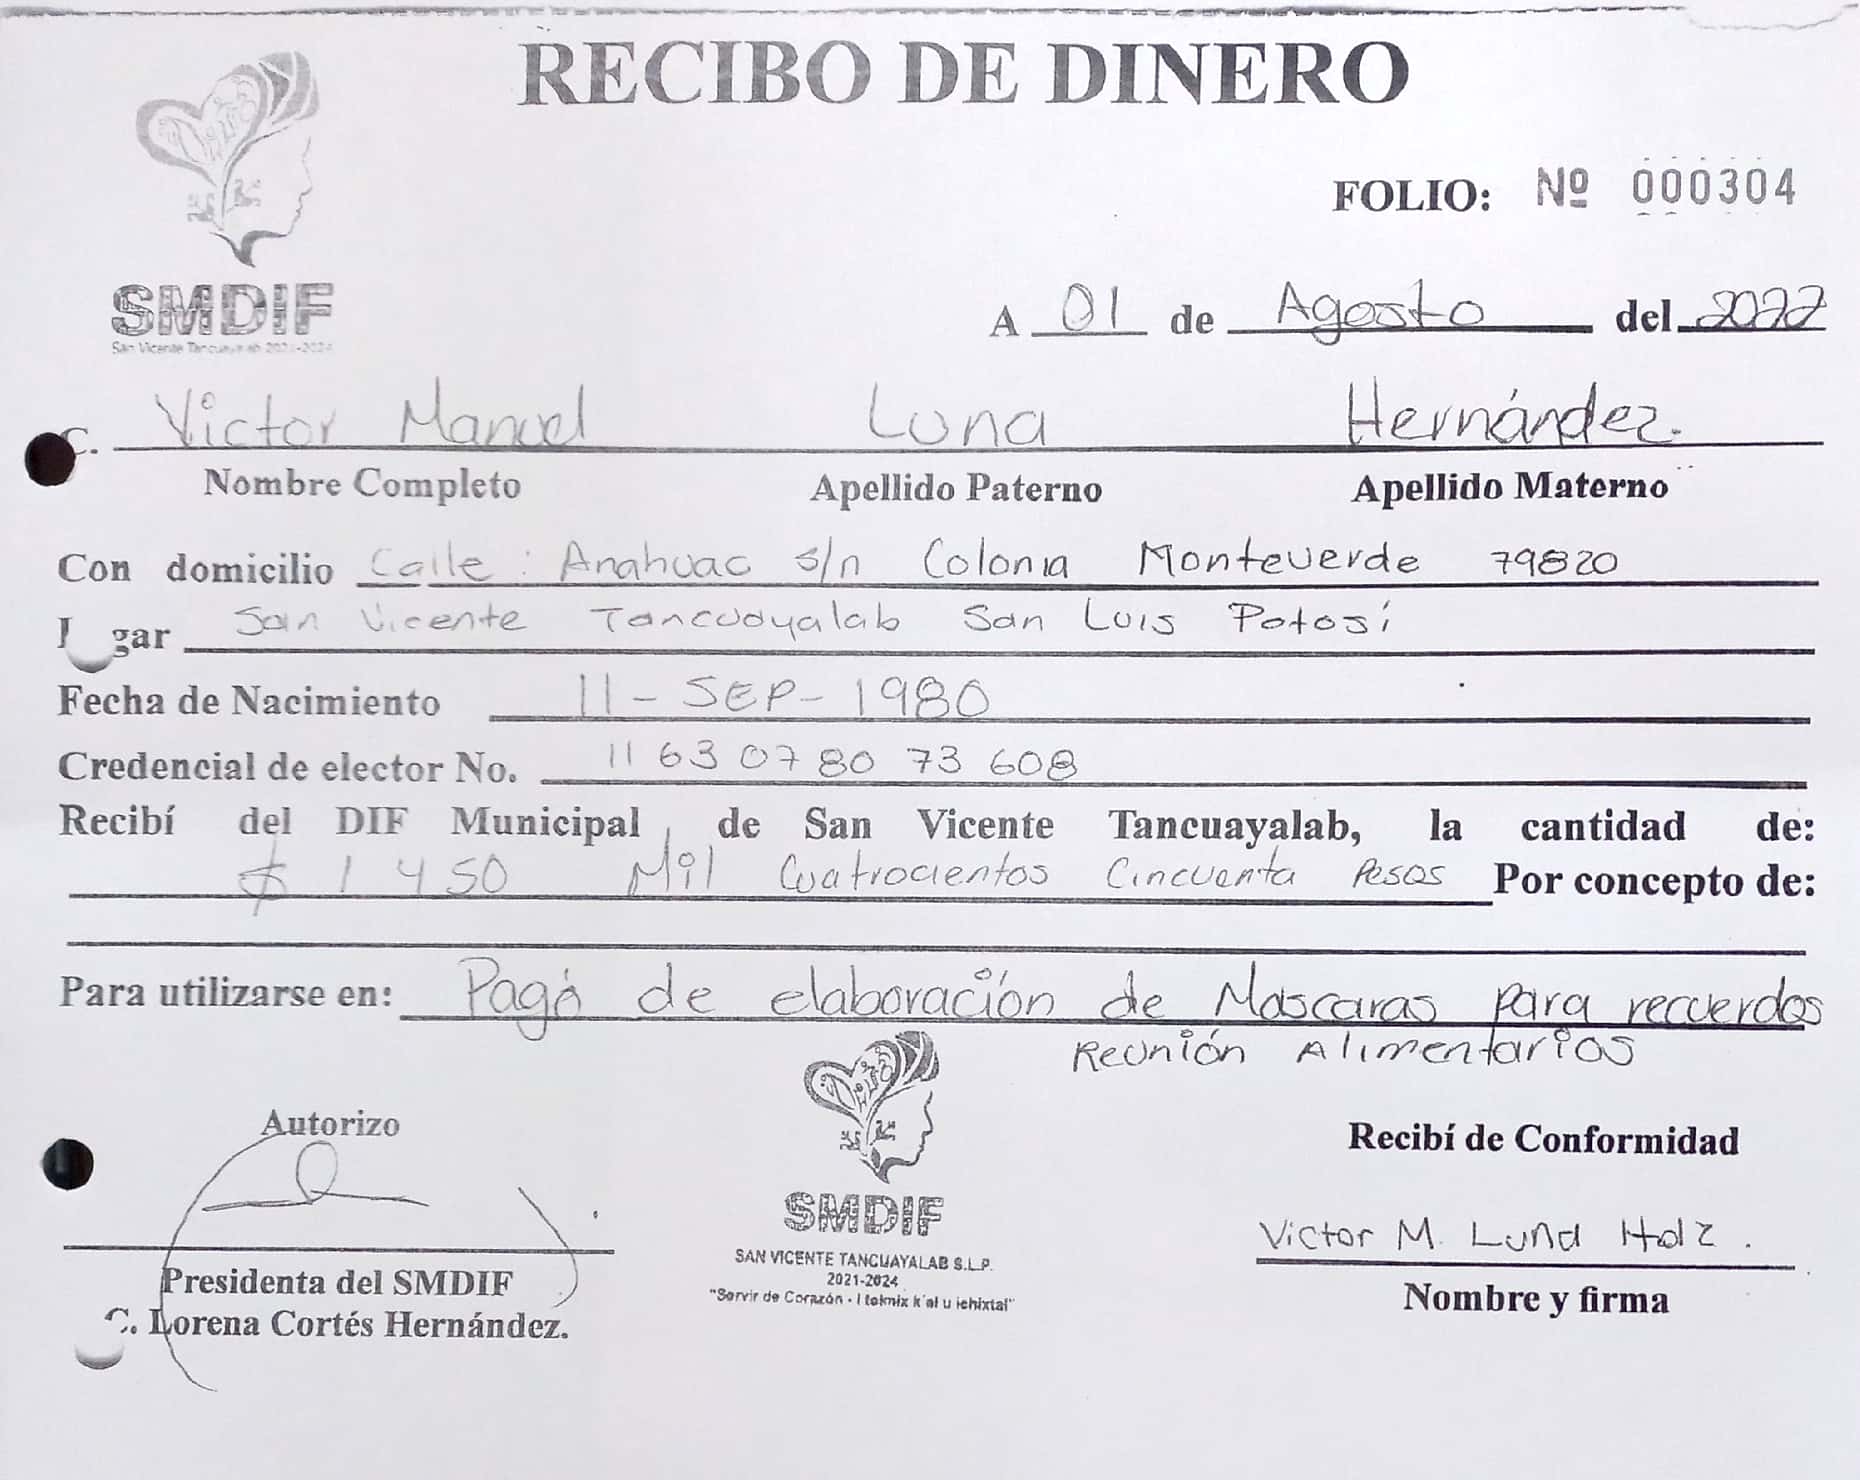 RECIBO DE DINERO
FOLIO: Nº 000304
SMDIF
San Vicente Tancuayalab 2021-2024
A 01 de Agosto del 2022
C. Victor Manuel Luna Hernández.
Nombre Completo Apellido Paterno Apellido Materno
Con domicilio Calle: Anahuac s/n Colonia Monteverde 79820
Lugar San Vicente Tancuayalab San Luis Potosí
Fecha de Nacimiento 11-SEP-1980
Credencial de elector No. 11 63 07 80 73 608
Recibí del DIF Municipal de San Vicente Tancuayalab, la cantidad de:
$ 1 450 Mil Cuatrocientos Cincuenta Pesos Por concepto de:
Para utilizarse en: Pagó de elaboración de Mascaras para recuerdos
Reunión Alimentarios
Autorizo
Presidenta del SMDIF
C. Lorena Cortés Hernández.
SMDIF
SAN VICENTE TANCUAYALAB S.L.P.
2021-2024
"Servir de Corazón -
Recibí de Conformidad
Victor M. Luna Hdz.
Nombre y firma